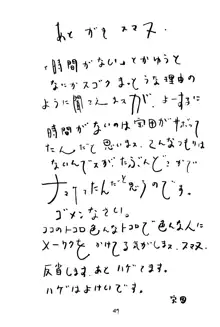 あとがきスマヌ.
「時間がない」とかゆうと
なにかスゴクまっとうな理由の
ように聞こえますが、よーするに
時間がないのは宮田がサボって
たんだと思います。こんなつもりは
ないんでスがたぶんどこかで
ナマケてたんだと思うのです。
ゴメンなさい。
ココのトコロ色んなトコロで色んな人に
メーワクをかけてる気がします。スマヌ
反省します。あとハゲてます。
ハゲはよけいです。
宮田
49